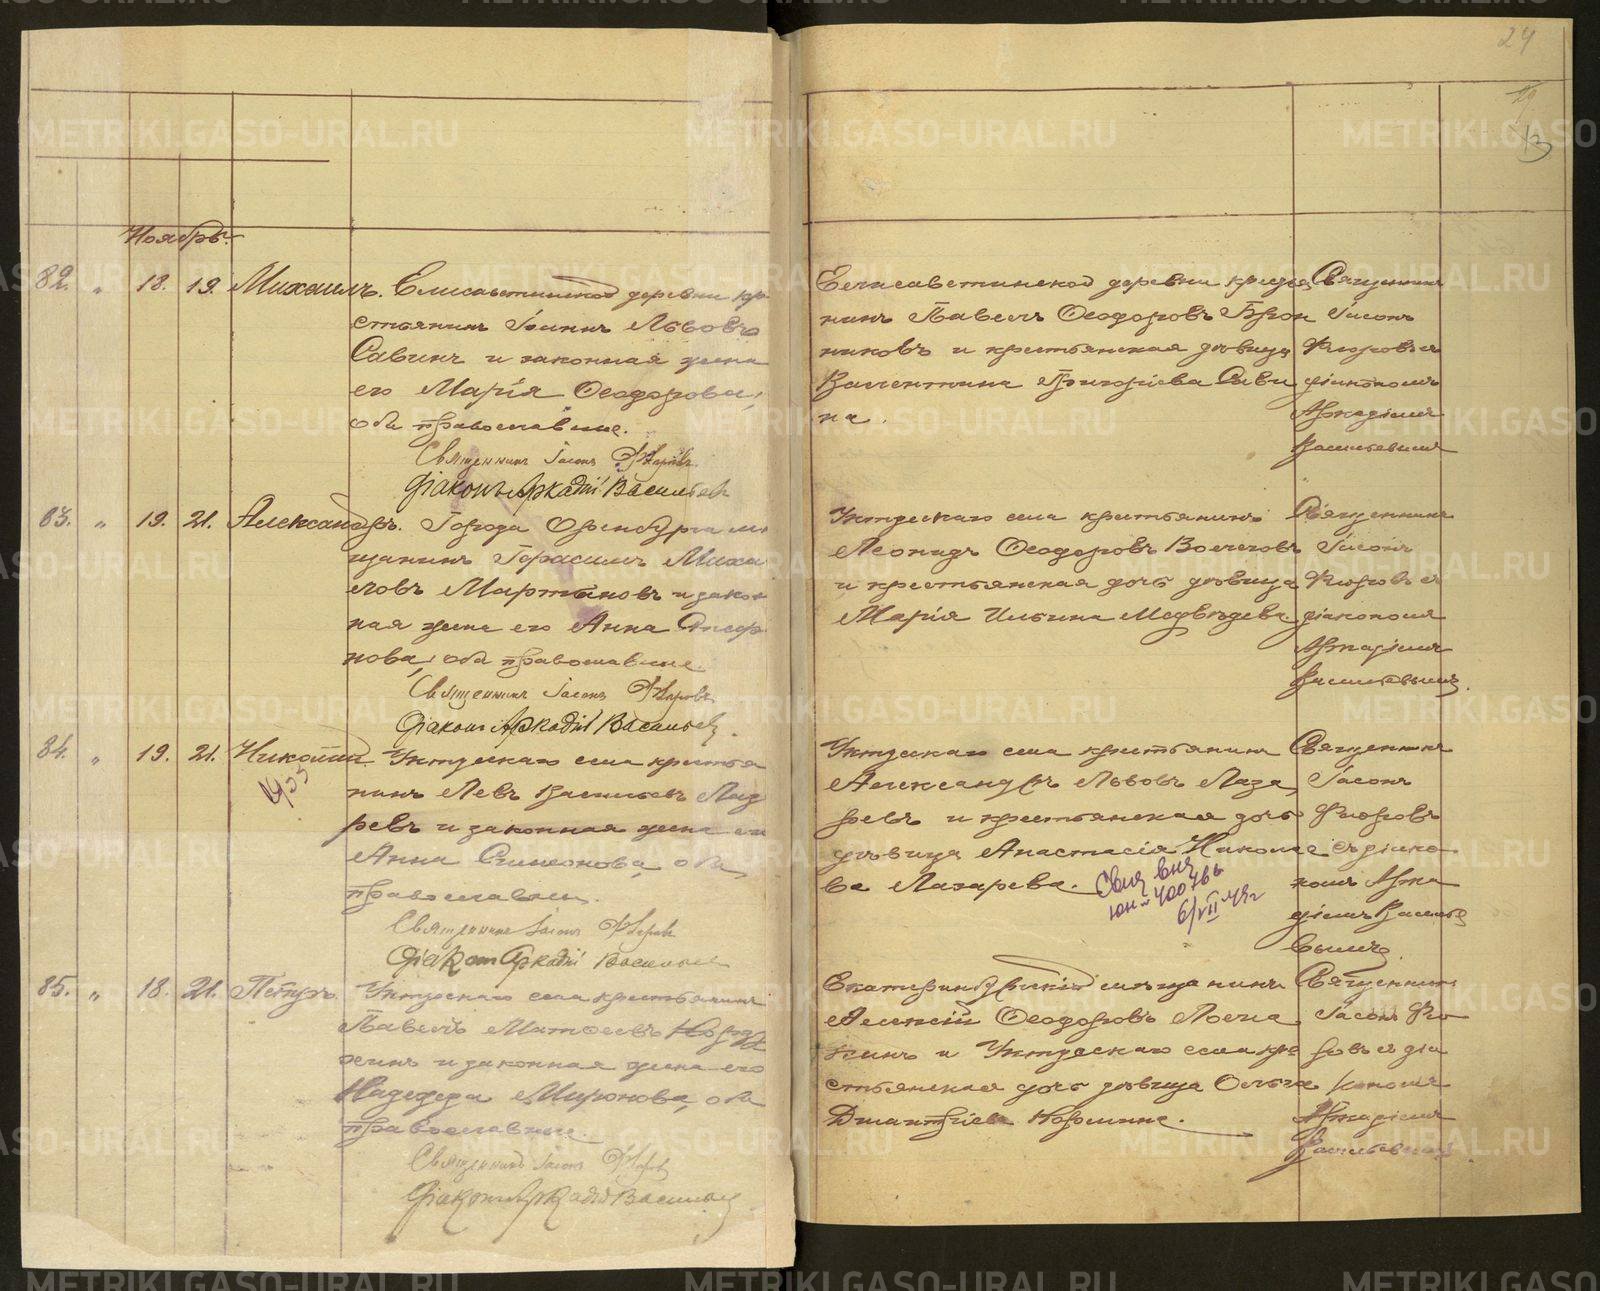 24
29
13
METRIKI.GASO-URAL.RU
Ноябрь.
82. " 18. 19. Михаилъ. Елисаветинской деревни кре
стьянинъ Іоаннъ Львовъ
Савинъ и законная жена
его Марія Ѳеодорова,
оба православные.
Священникъ Іасонъ
Діаконъ Аркадій Васильевъ
Елисаветинской деревни крестья
нинъ Павелъ Ѳеодоровъ Брон
никовъ и крестьянская дѣвица
Валентина Григоріева Сави
на.
Священникъ
Іасонъ
діакономъ
Аркадіемъ
Васильевымъ
83. " 19. 21. Александръ. Города Оренбурга мѣ
щанинъ Герасимъ Михаи
ловъ Мартыновъ и закон
ная жена его Анна
оба православные.
Священникъ Іасонъ
Діаконъ Аркадій Васильевъ.
Уктусскаго села крестьянинъ
Леонидъ Ѳеодоровъ
и крестьянская дочь дѣвица
Марія Ильина Медвѣдева.
Священникъ
Іасонъ
діакономъ
Аркадіемъ
Васильевымъ.
84. " 19. 21. Николай. Уктусскаго села крестья
нинъ Левъ Васильевъ Лаза
ревъ и законная жена его
Анна Симеонова, оба
православные.
Священникъ Іасонъ
Діаконъ Аркадій Васильевъ
Уктусскаго села крестьянинъ
Александръ Львовъ Лаза
ревъ и крестьянская дочь
дѣвица Анастасія Никола
ва Лазарева.
6/VII
Священникъ
Іасонъ
съ діако
номъ Арка
діемъ Василье
вымъ.
85. " 18. 21. Петръ. Уктусскаго села крестьянинъ
Павелъ Матѳеевъ
жинъ и законная жена его
Надежда Миронова, оба
православные.
Священникъ Іасонъ
Діаконъ Аркадій Васильевъ
Екатеринбургскій мѣщанинъ
Алексій Ѳеодоровъ
и Уктусскаго села кре
стьянская дочь дѣвица Ольга
Димитріева
Священникъ
Іасонъ
діа
кономъ
Аркадіемъ
Васильевымъ